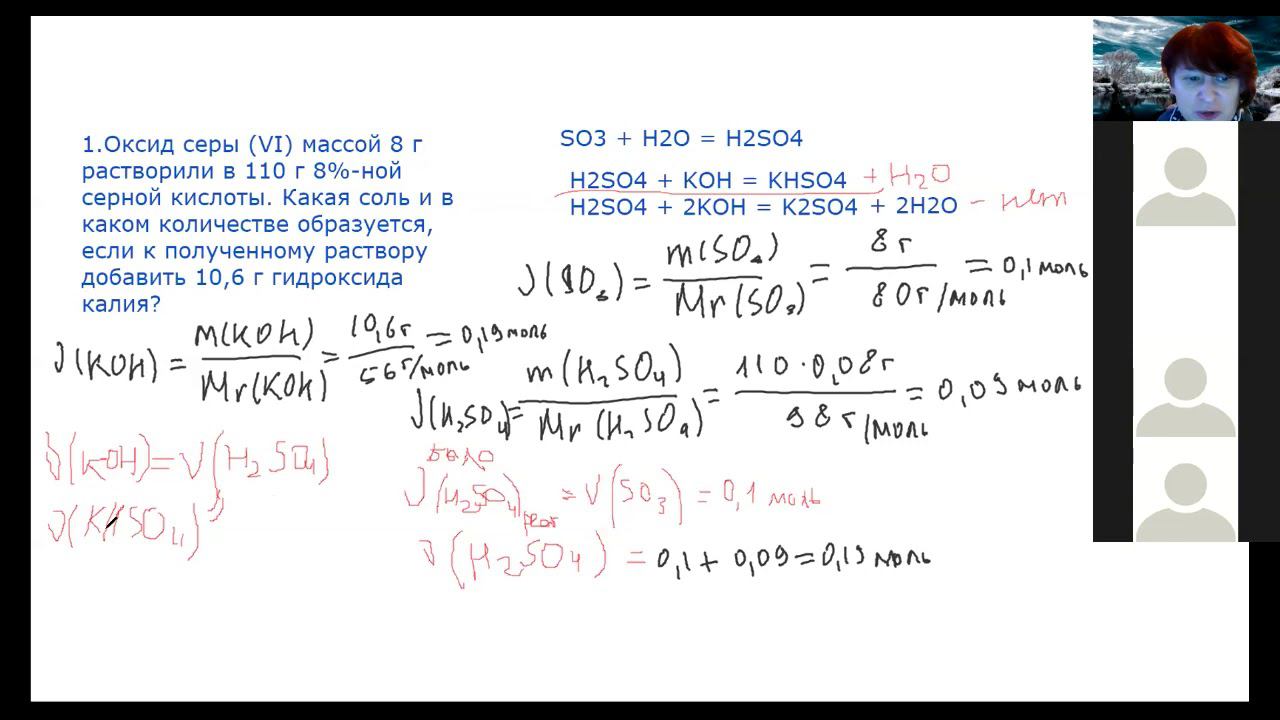 1.Оксид серы (VI) массой 8 г
растворили в 110 г 8%-ной
серной кислоты. Какая соль и в
каком количестве образуется,
если к полученному раствору
добавить 10,6 г гидроксида
калия?
SO3 + H2O = H2SO4
H2SO4 + KOH = KHSO4 + H2O
H2SO4 + 2KOH = K2SO4 + 2H2O - нет
ν(SO3) = m(SO3) / Mr(SO3) = 8 г / 80 г/моль = 0,1 моль
ν(KOH) = m(KOH) / Mr(KOH) = 10,6 г / 56 г/моль = 0,19 моль
ν(H2SO4) = m(H2SO4) / Mr(H2SO4) = 110 · 0,08 г / 98 г/моль = 0,09 моль
ν(KOH) = ν(H2SO4)
ν(KHSO4)
было
ν(H2SO4) = ν(SO3) = 0,1 моль
ν(H2SO4) = 0,1 + 0,09 = 0,19 моль